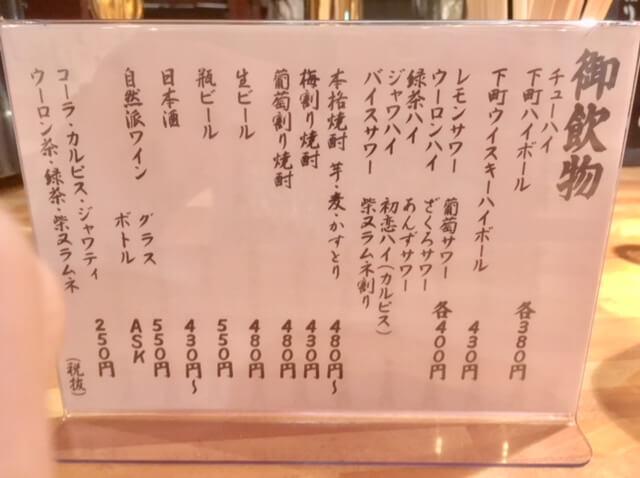 御飲物
チューハイ
下町ハイボール 各380円
下町ウイスキーハイボール 430円
レモンサワー 葡萄サワー 各400円
ウーロンハイ ざくろサワー
緑茶ハイ あんずサワー
ジャワハイ 初恋ハイ(カルピス)
バイスサワー 柴又ラムネ割り
本格焼酎 芋・麦・かすとり 480円~
梅割り焼酎 430円
葡萄割り焼酎 480円
生ビール 480円
瓶ビール 550円
日本酒 430円~
自然派ワイン グラス 550円
ボトル ASK
コーラ・カルピス・ジャワティ 250円
ウーロン茶・緑茶・柴又ラムネ
(税抜)